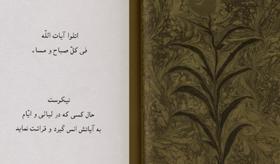 اتلوا آيات اللّه
فى كلّ صباح و مساء
نيكوست
حال كسى كه در ليالى و ايّام
به آياتش انس گيرد و قرائت نمايد